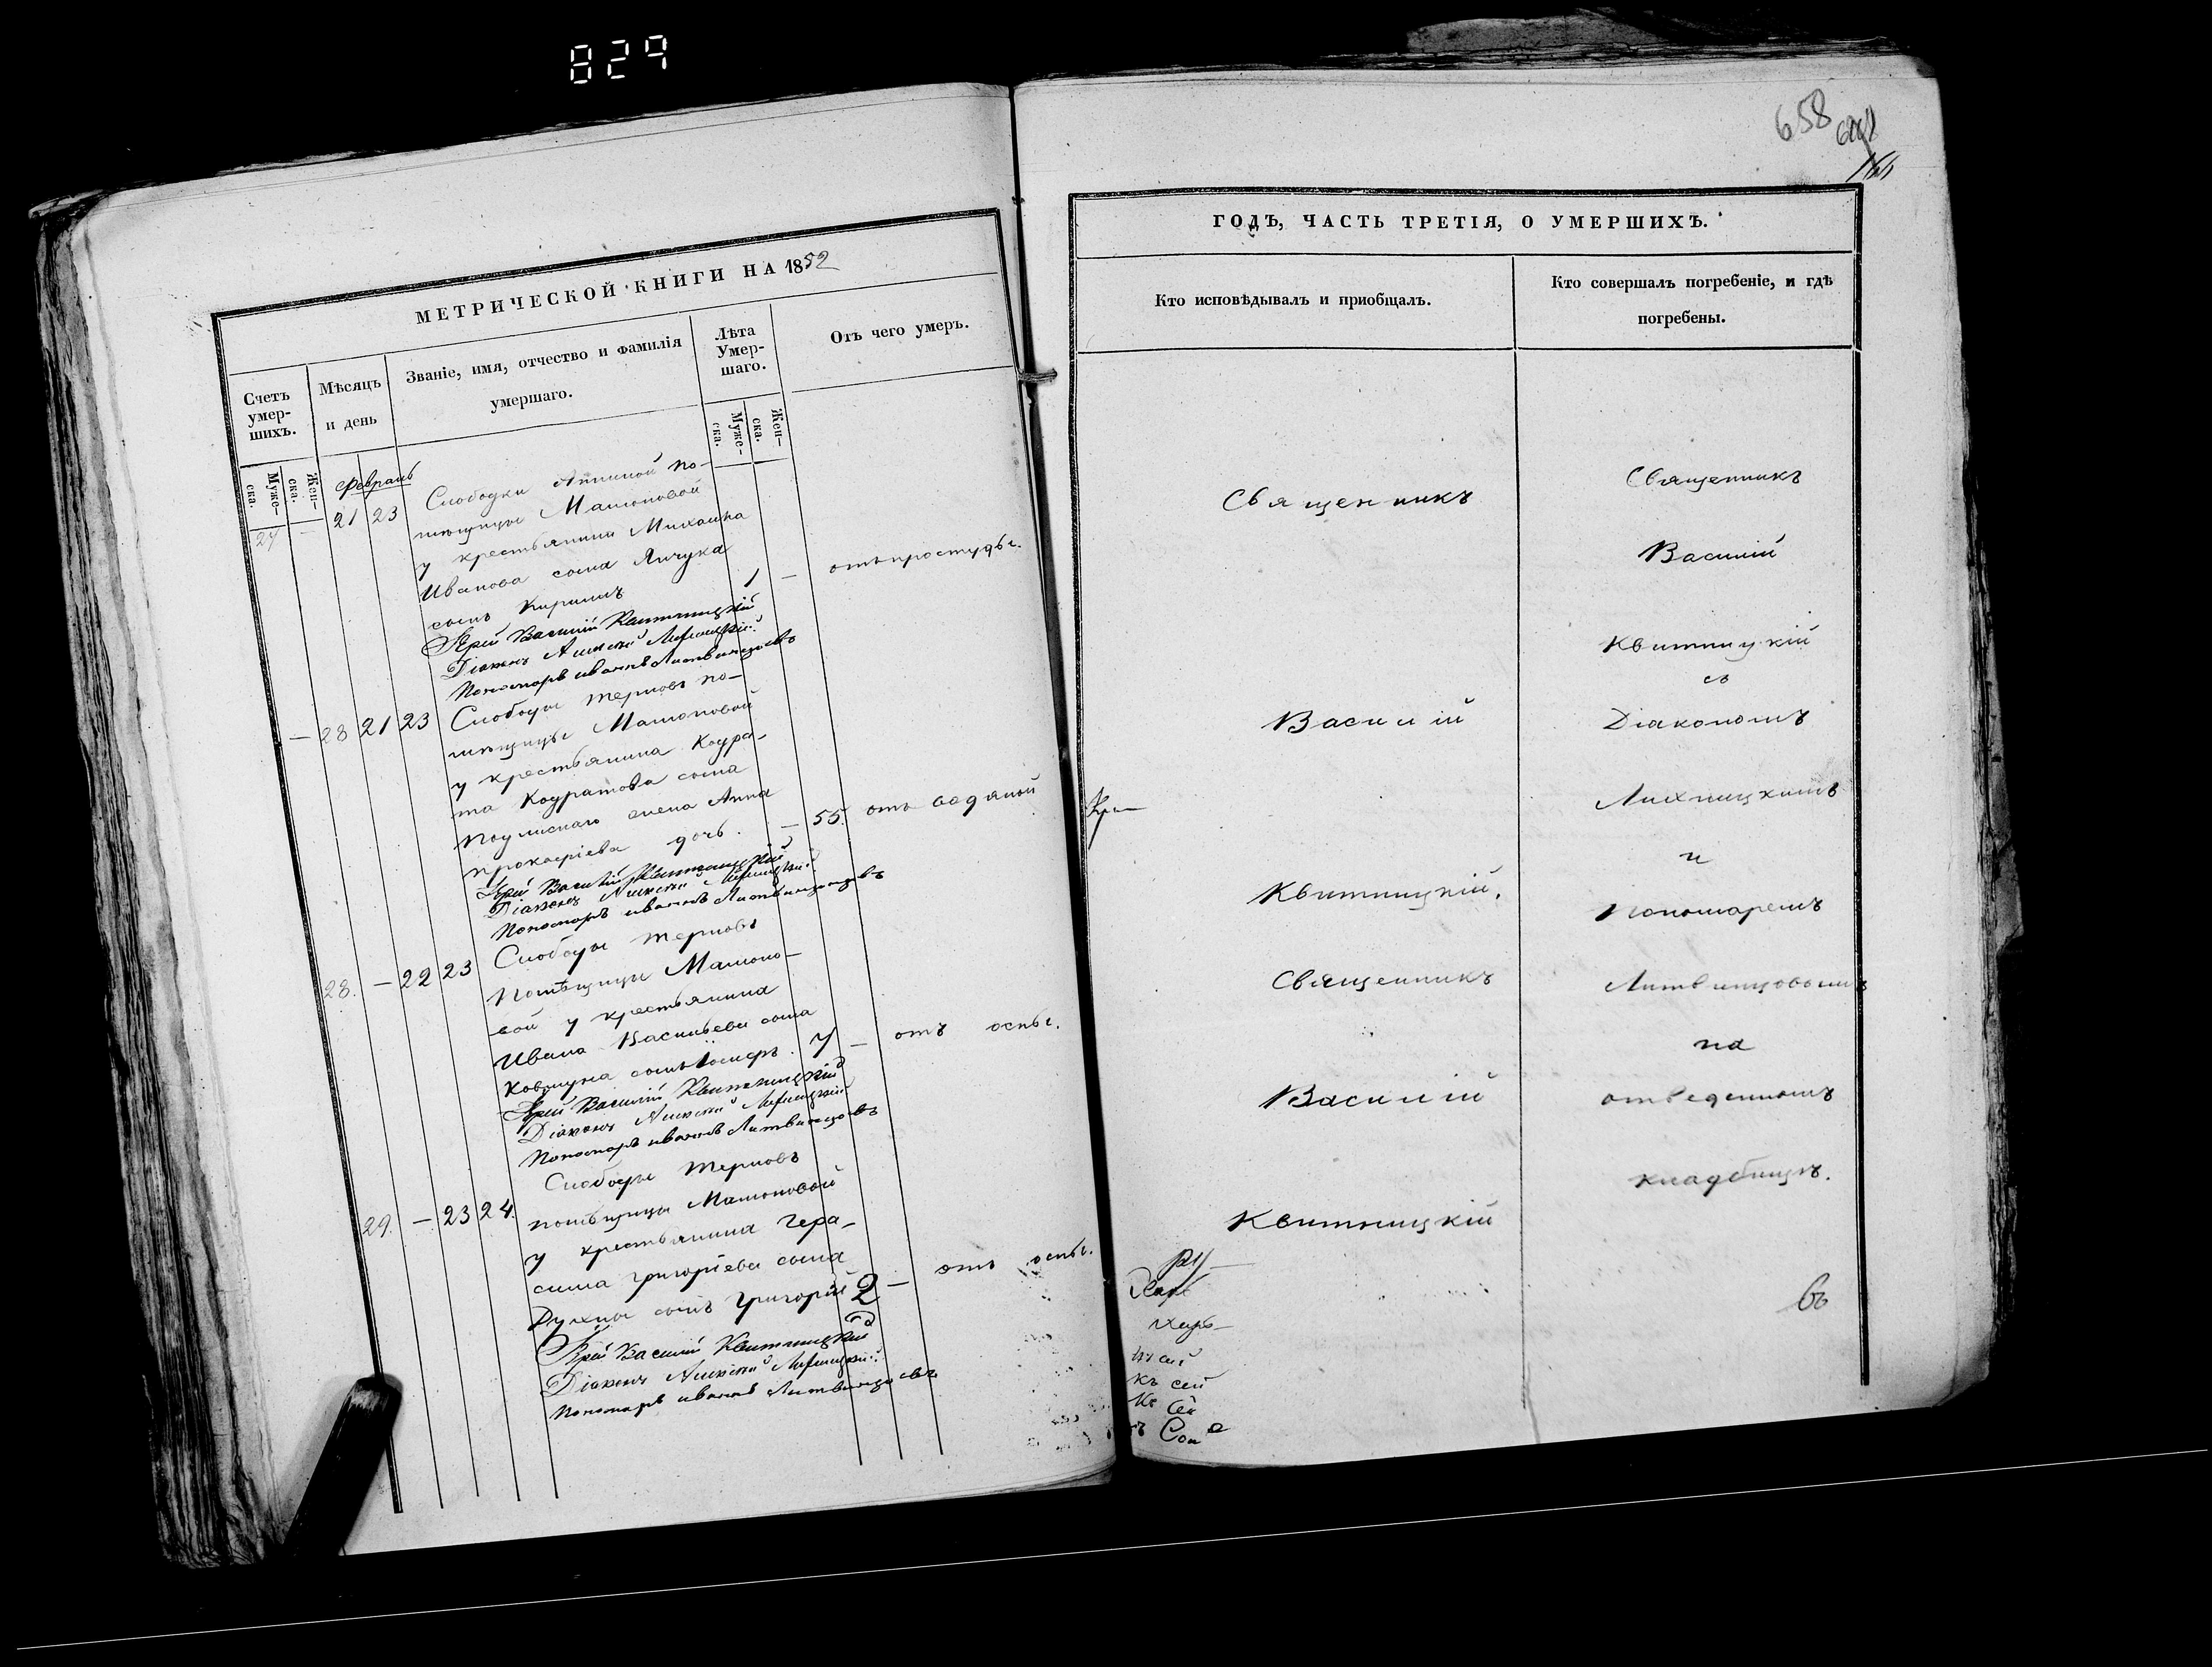 829
МЕТРИЧЕСКОЙ КНИГИ НА 1852
Счетъ умер-шихъ.
Мѣсяцъ и день
Званіе, имя, отчество и фамилія умершаго.
Лѣта Умер-шаго.
Отъ чего умеръ.
Муже-ска.
Жен-ска.
Муже-ска.
Жен-ска.
Февраль
27 — 21 23
Слободки Анниной по-
мѣщицы Матюновой
у крестьянина Михаила
Иванова сына Янчука
сынъ Кирилъ 1 — отъ простуды.
Іерей Василій Квитницкій
Діаконъ Алексѣй Лихницкій
Пономарь Иванъ Литвинцовъ
— 28 21 23
Слободы Терновъ по-
мѣщицы Матюновой
у крестьянина Кодра-
та Кодратова сына
жена Анна
Прокофіева дочь. — 55. отъ водяной
Іерей Василій Квитницкій
Діаконъ Алексѣй Лихницкій
Пономарь Иванъ Литвинцовъ
28. — 22 23
Слободы Терновъ
Помѣщицы Матюно-
вой у крестьянина
Ивана Васильева сына
Ковтуна сынъ Іосифъ. 7 — отъ оспы.
Іерей Василій Квитницкій
Діаконъ Алексѣй Лихницкій
Пономарь Иванъ Литвинцовъ
29. — 23 24.
Слободы Терновъ
помѣщицы Матюновой
у крестьянина Гера-
сима Григоріева сына
Духны сынъ Григорій 2 — отъ оспы.
Іерей Василій Квитницкій
Діаконъ Алексѣй Лихницкій
Пономарь Иванъ Литвинцовъ
658
ГОДЪ, ЧАСТЬ ТРЕТІЯ, О УМЕРШИХЪ.
Кто исповѣдывалъ и приобщалъ.
Кто совершалъ погребеніе, и гдѣ
погребены.
Священникъ
Василій
Квитницкій.
Священникъ
Василій
Квитницкій
Священникъ
Василій
Квитницкій
съ
Діакономъ
Лихницкимъ
и
Пономаремъ
Литвинцовымъ
на
отведенномъ
кладбищѣ.